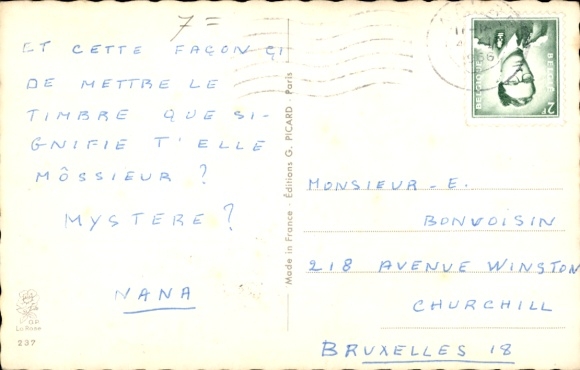 7=
ET CETTE FAÇON ÇI
DE METTRE LE
TIMBRE QUE SI-
GNIFIE T'ELLE
MÔSSIEUR ?
MYSTERE ?
NANA
La Rose
237
Made in France - Éditions G. PICARD - Paris
BELGIQUE BELGIË
2F
MONSIEUR - E.
BONVOISIN
218 AVENUE WINSTON
CHURCHILL
BRUXELLES 18